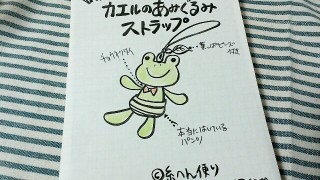 カエルのあみぐるみ
ストラップ
葉っぱビーズ
付き
チョウネクタイ
本当にはいている
パンツ
©糸へん便り